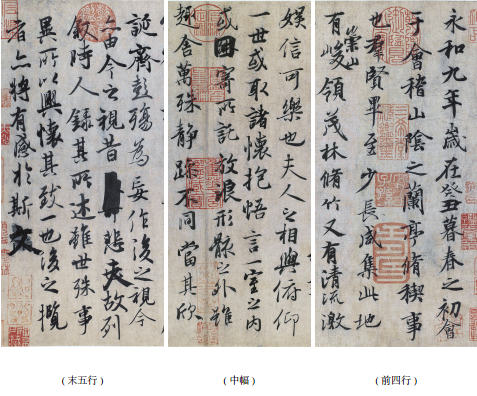 永和九年歲在癸丑暮春之初會
于會稽山陰之蘭亭脩稧事
也羣賢畢至少長咸集此地
有崇山峻領茂林脩竹又有清流激
(前四行)
娛信可樂也夫人之相與俯仰
一世或取諸懷抱悟言一室之内
或因寄所託放浪形骸之外雖
趣舍萬殊静躁不同當其欣
(中幅)
誕齊彭殤為妄作後之視今
亦由今之視昔悲夫故列
叙時人録其所述雖世殊事
異所以興懷其致一也後之攬
者亦將有感於斯文
(末五行)